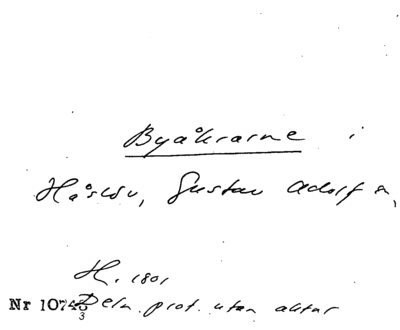 Byåkrarne i
Håslöv, Gustav Adolf n,
H. 1801
Nr 1074 Deln. prot. utan aktur
3